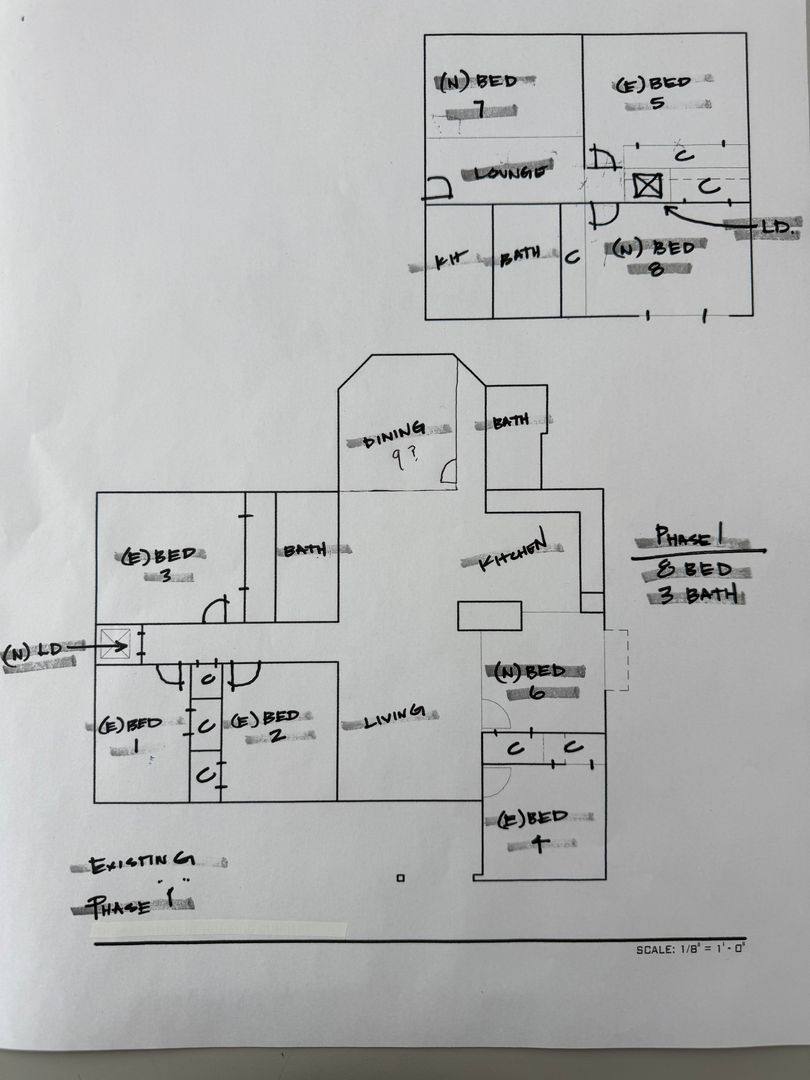 (N) BED
7
(E) BED
5
LOUNGE
C
C
LD.
KIT
BATH
C
(N) BED
8
DINING
9?
BATH
(E) BED
3
BATH
KITCHEN
PHASE 1
8 BED
3 BATH
(N) LD
(E) BED
1
C
C
C
(E) BED
2
LIVING
(N) BED
6
C
C
(E) BED
4
EXISTING
PHASE "1"
SCALE: 1/8" = 1' - 0"